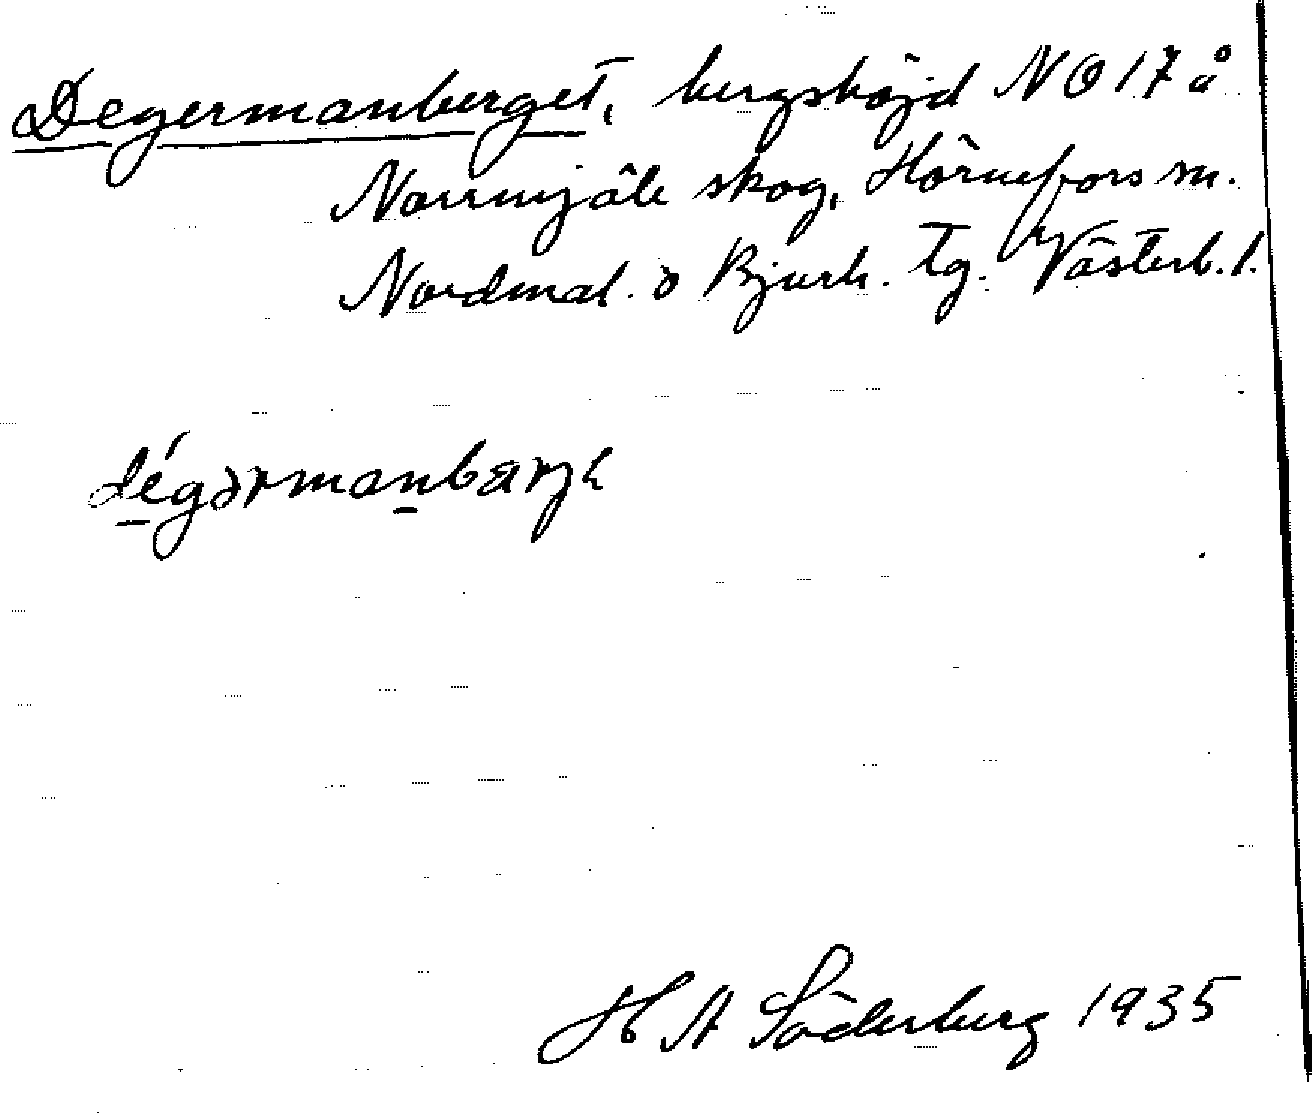 Degermanberget, bergshöjd NO 17 å
Norrmjöle skog, Hörnefors sn.
Nordmal. o Bjurh. tg. Västerb. l.
dégərmanbærjt
H A Söderberg 1935